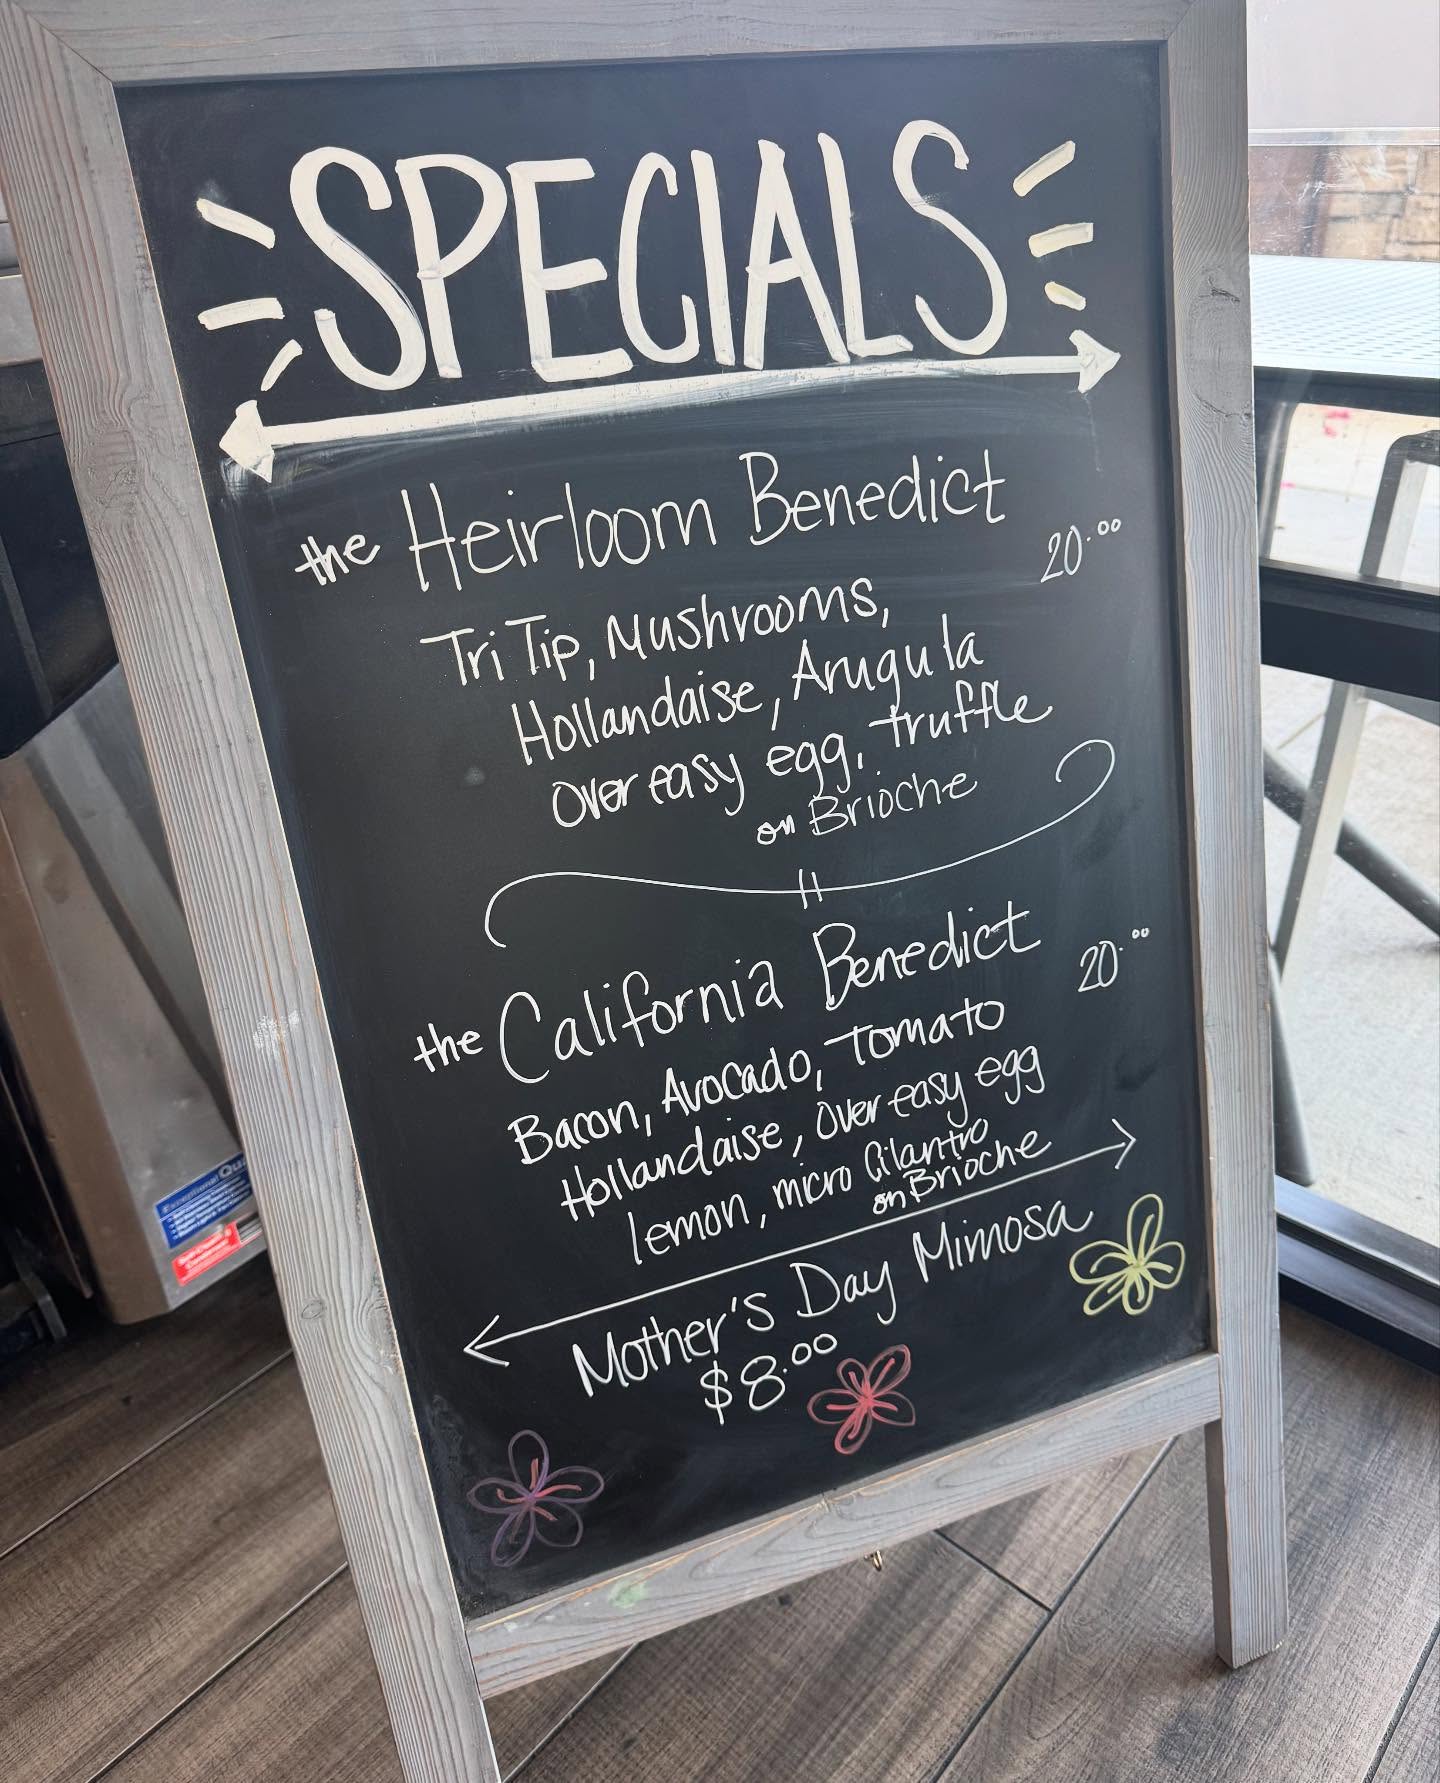 SPECIALS
the Heirloom Benedict 20.00
Tri Tip, Mushrooms,
Hollandaise, Arugula
over easy egg, truffle
on Brioche
the California Benedict 20.00
Bacon, Avocado, Tomato
Hollandaise, over easy egg
lemon, micro Cilantro
on Brioche
Mother's Day Mimosa
$8.00